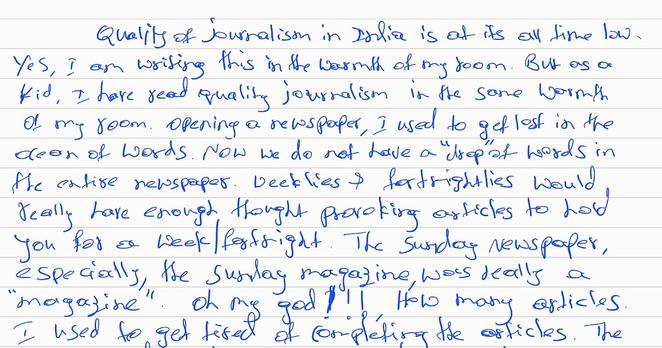 Quality of journalism in India is at its all time low.
Yes, I am writing this in the warmth of my room. But as a
kid, I have read quality journalism in the same warmth
of my room. Opening a newspaper, I used to get lost in the
ocean of words. Now we do not have a "drop" of words in
the entire newspaper. Weeklies & fortnightlies would
really have enough thought provoking articles to hold
you for a week/fortnight. The Sunday newspaper,
especially, the Sunday magazine, was really a
"magazine". Oh my god !!! How many articles.
I used to get tired of completing the articles. The